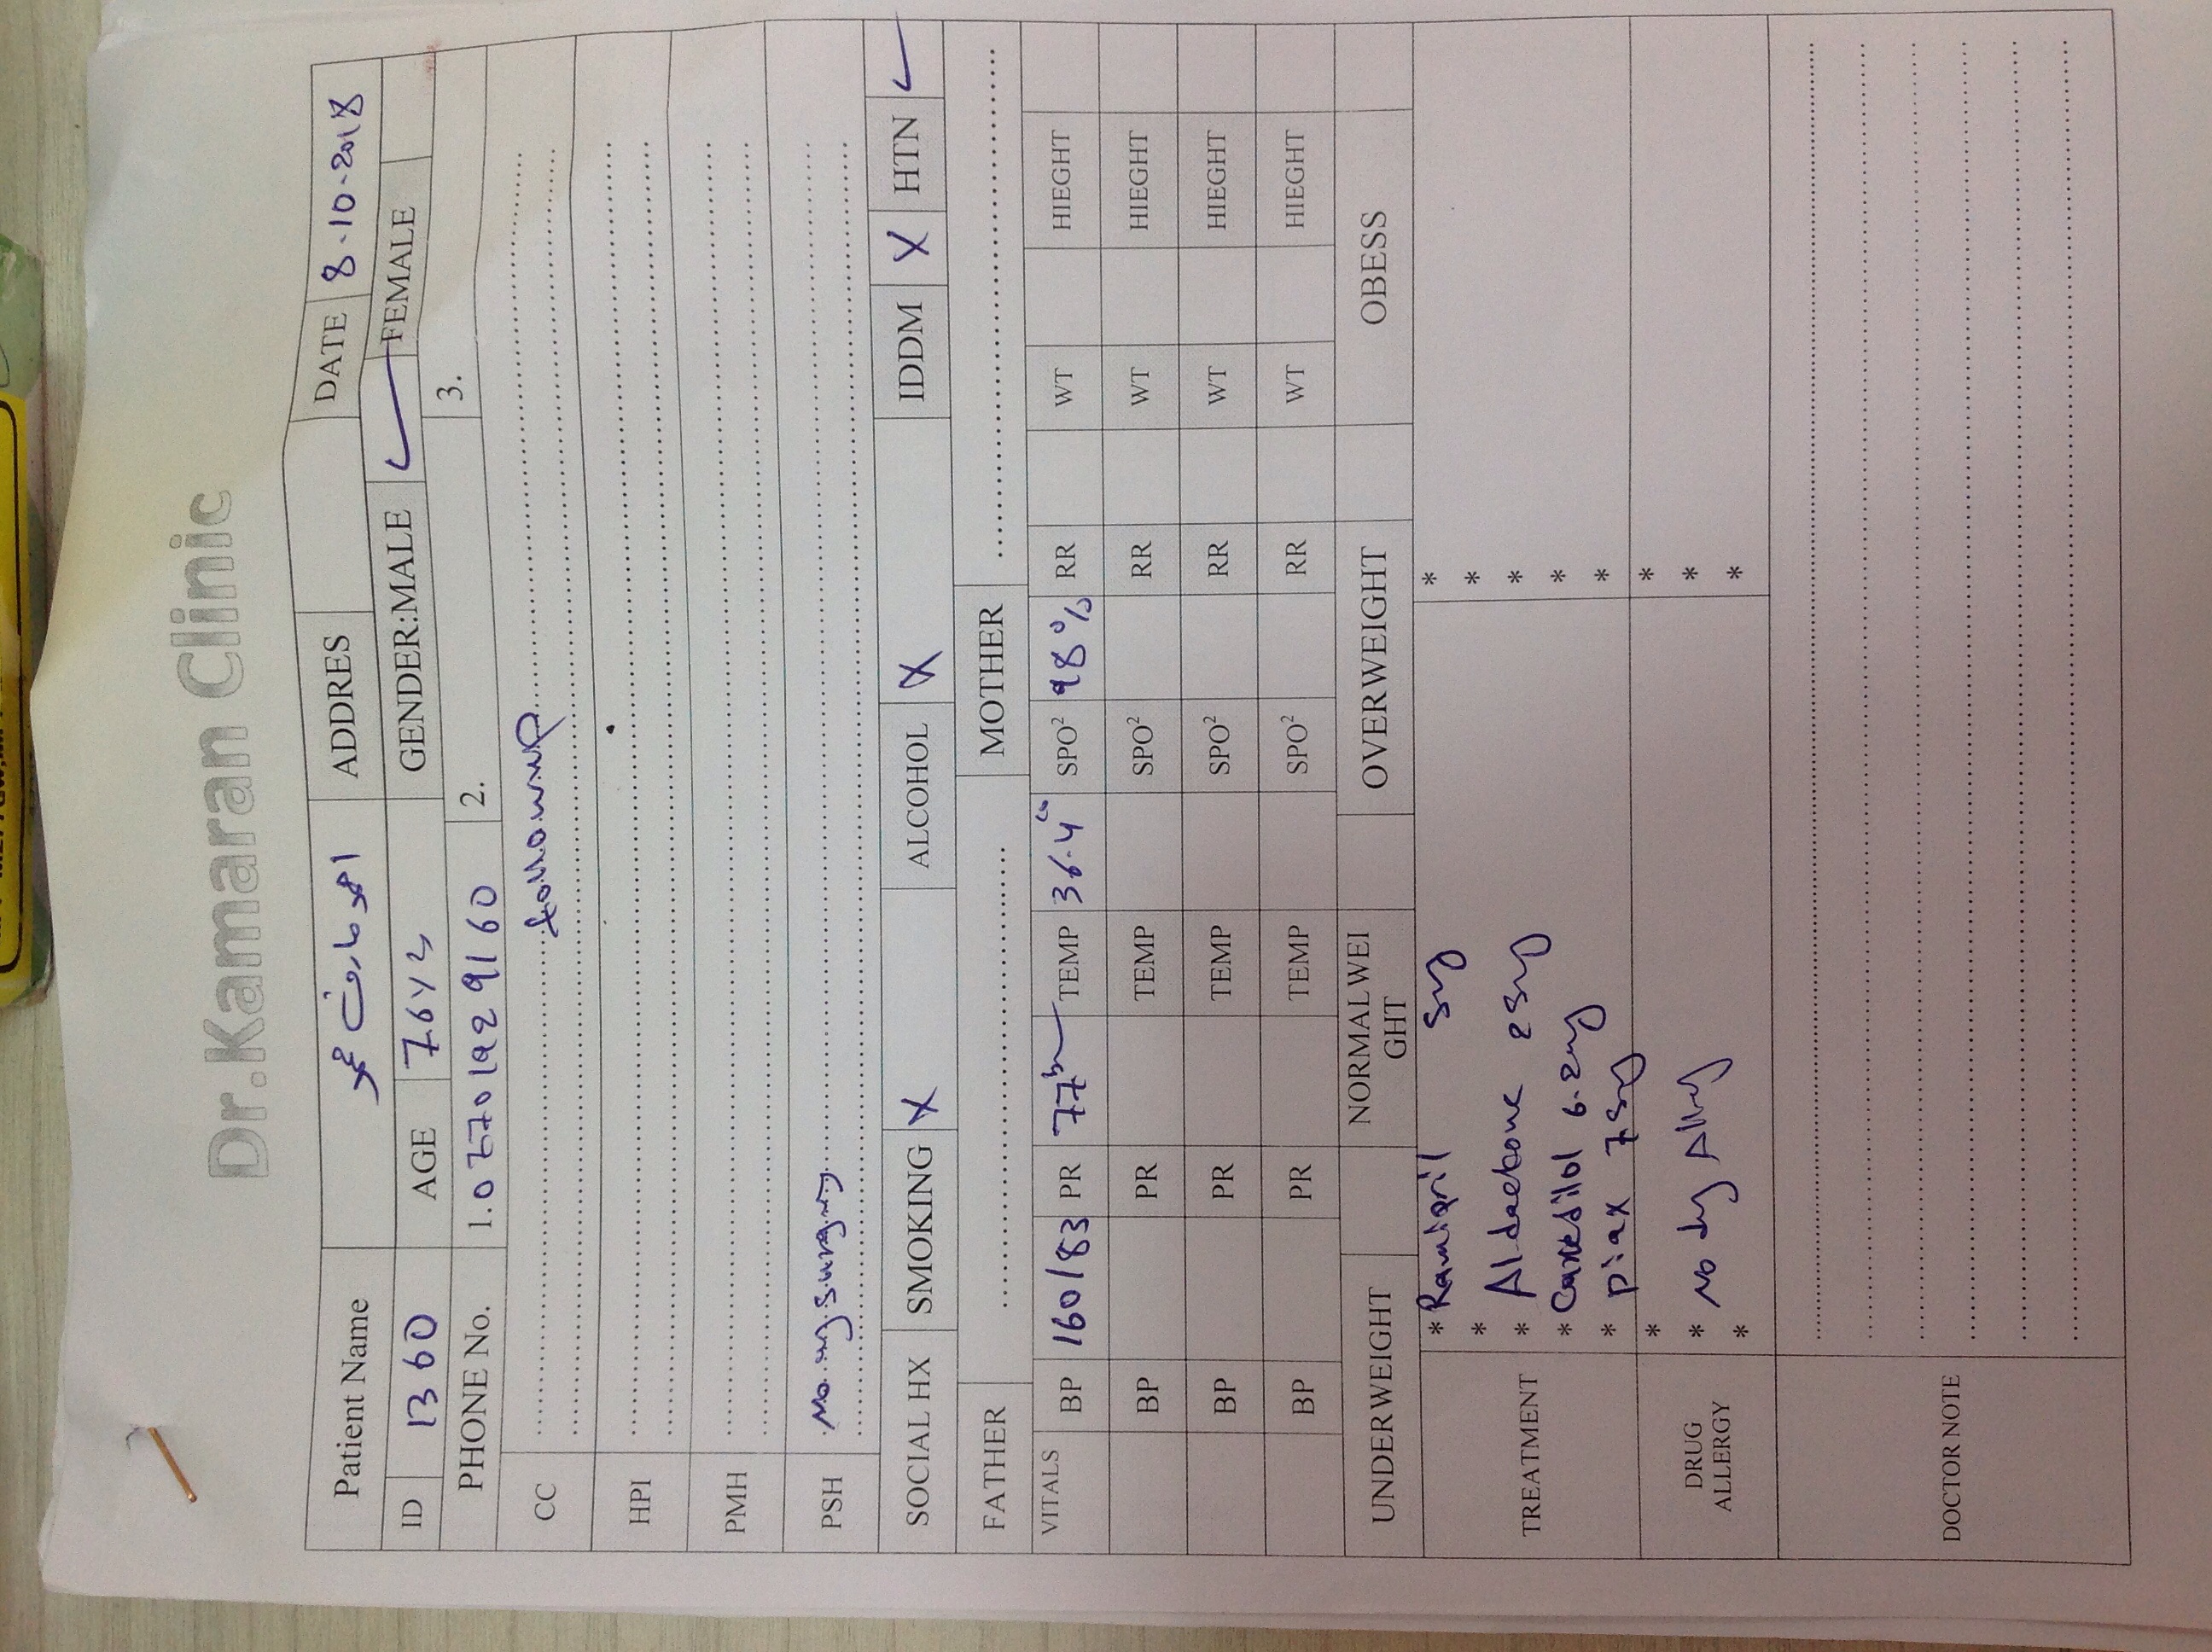 Dr.Kamaran Clinic
Patient Name ADDRES DATE 8-10-2018
ID 1360 AGE 76 Y GENDER:MALE ✓ FEMALE
PHONE No. 1.0 7701929160 2. 3.
CC followup
HPI
PMH
PSH No surgery
SOCIAL HX SMOKING X ALCOHOL X IDDM X HTN ✓
FATHER MOTHER
VITALS BP 160/83 PR 77 TEMP 36.4 SPO² 98% RR WT HIEGHT
BP PR TEMP SPO² RR WT HIEGHT
BP PR TEMP SPO² RR WT HIEGHT
BP PR TEMP SPO² RR WT HIEGHT
UNDERWEIGHT NORMALWEI
GHT OVERWEIGHT OBESS
TREATMENT
* Ramipril 5mg *
* *
* Aldactone 25mg *
* Carvedilol *
* piax 75mg *
DRUG
ALLERGY
* *
* No Allergy *
* *
DOCTOR NOTE